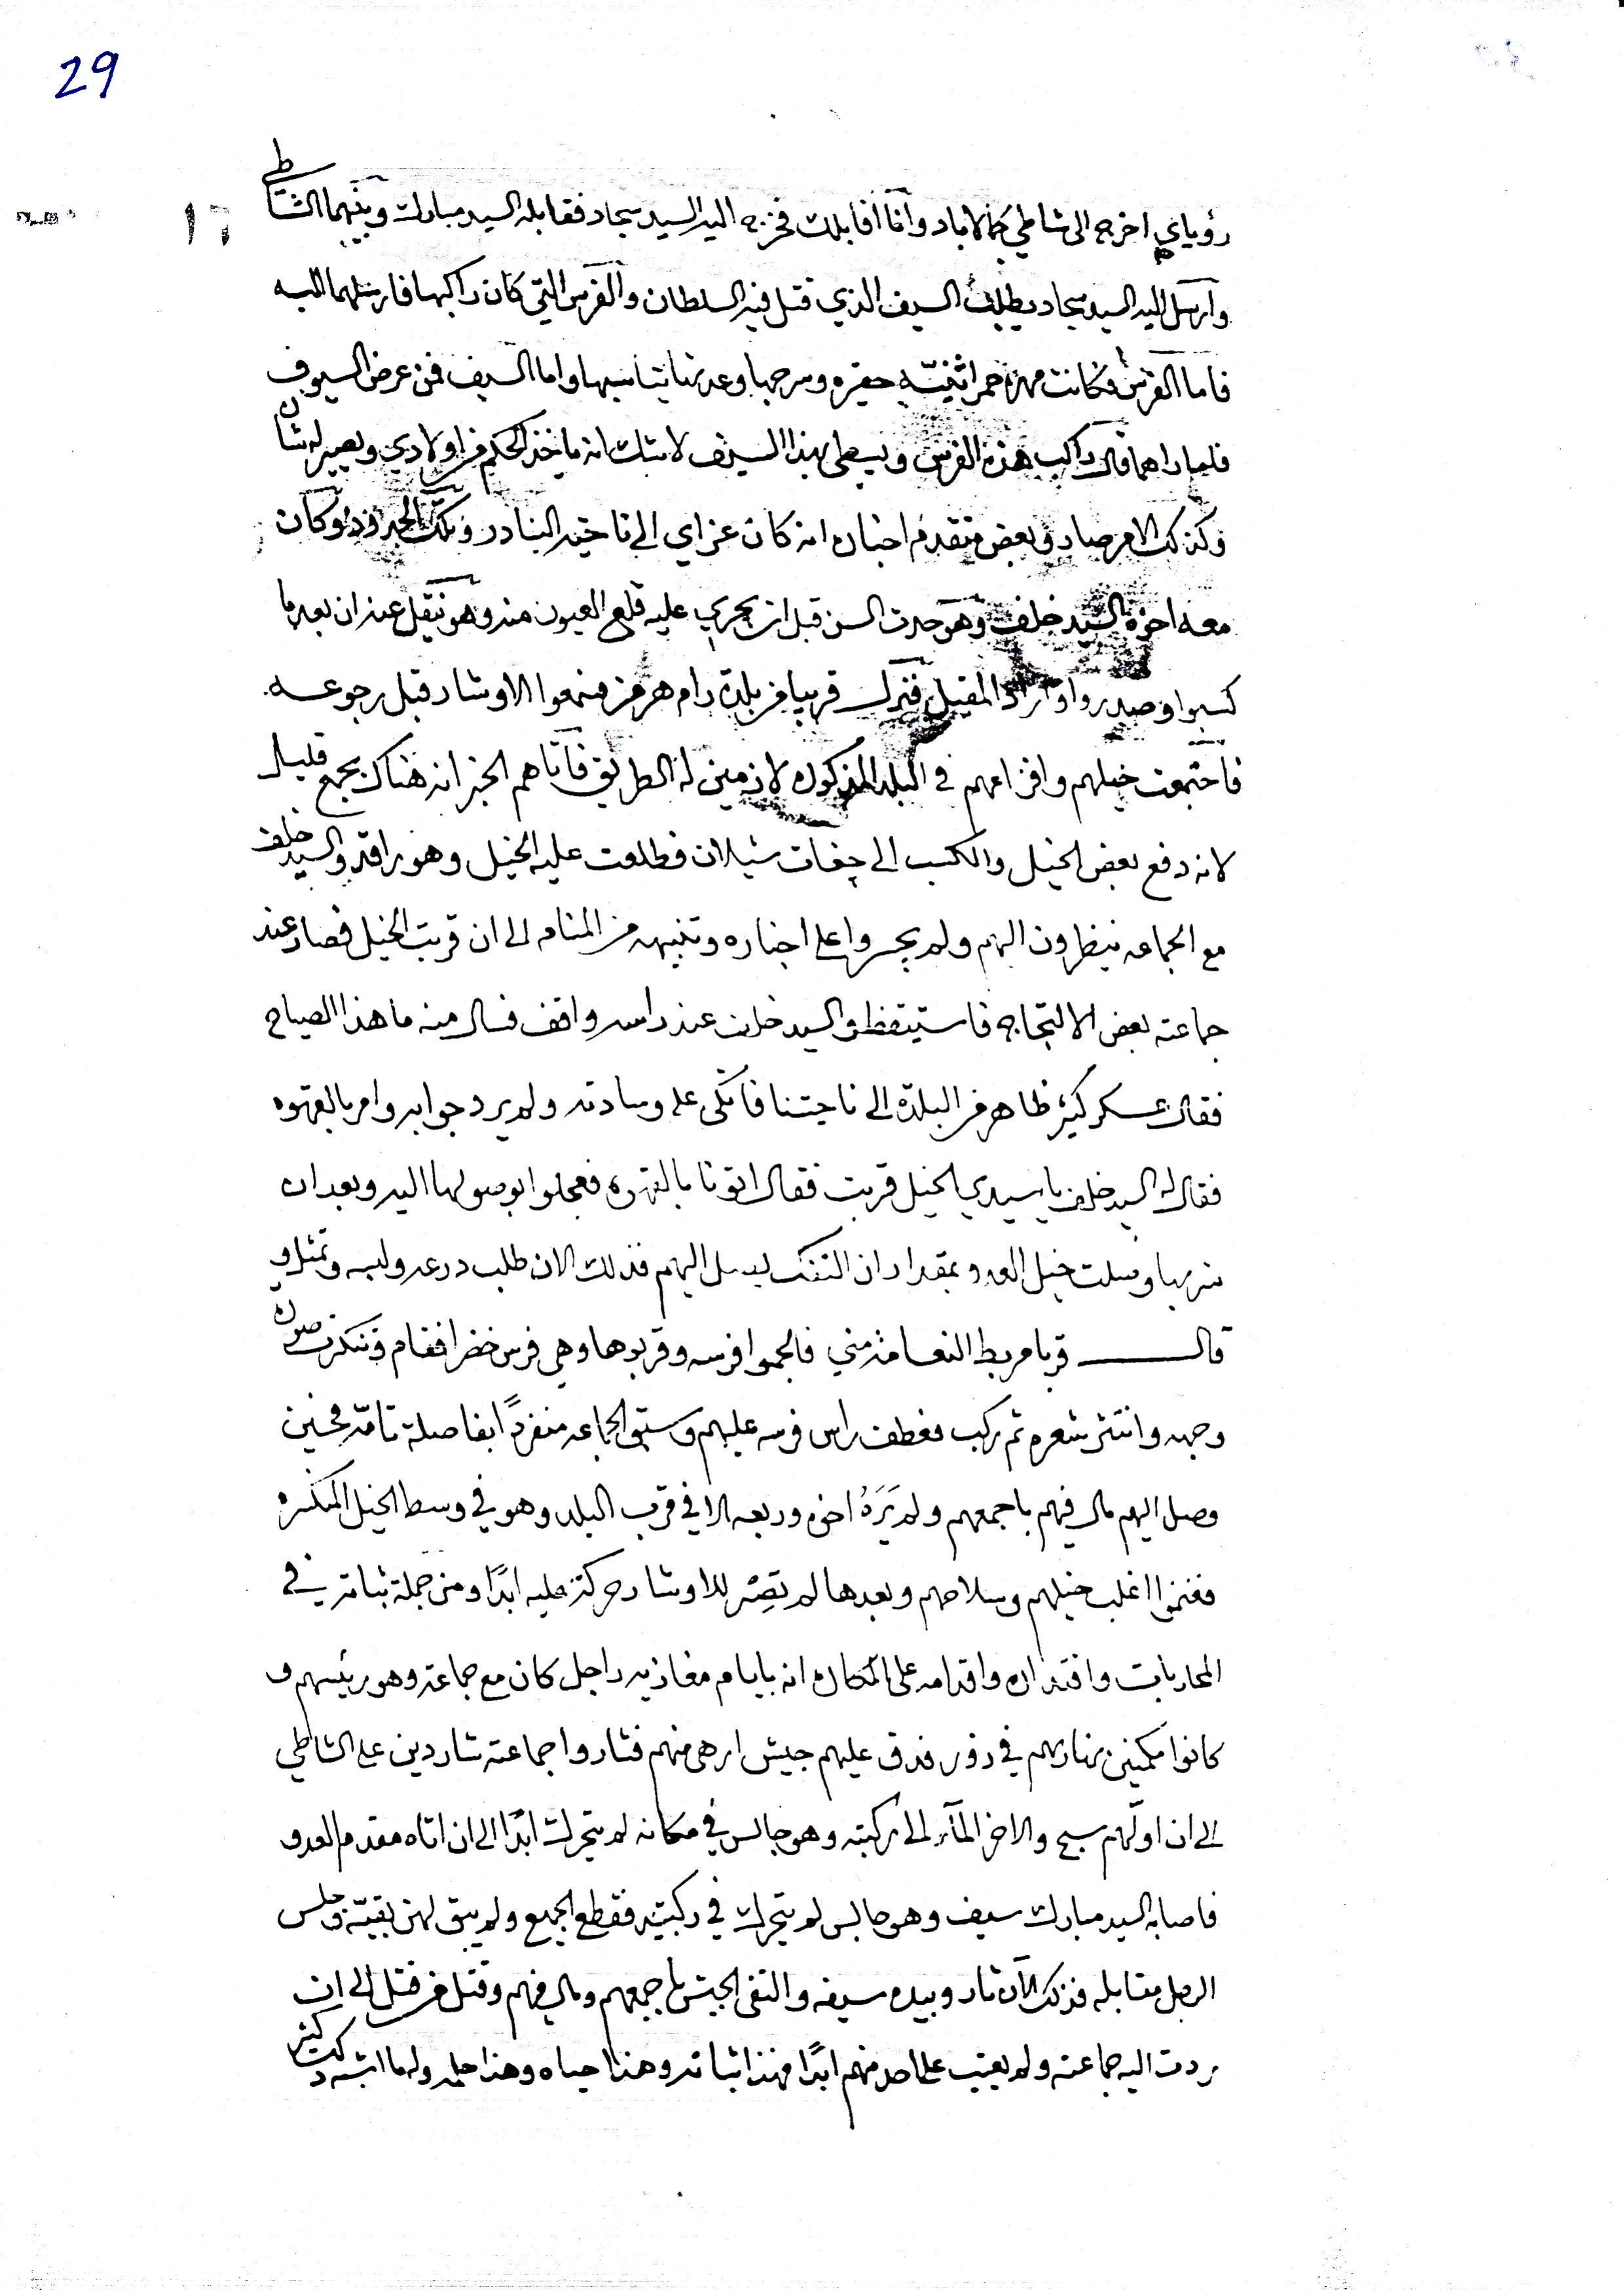 29
١٦
رؤياي اخرج الى شاطي كمالاباد وانا اقابلك فخرج اليه السيد سجاد فقابله السيد مبارك وبينهما الشاطي
وارسل اليه السيد سجاد يطلب السيف الذي قتل فيه السلطان والفرس التي كان راكبها فارسلهما اليه
فاما الفرس فكانت مهرة حمرا ثنيّه حقيره وسرجها وعدتها يتناسبها واما السيف فمن عرض السيوف
فلما راهما قال راكب هذه الفرس ويسطي بهذا السيف لا شك انه ياخذ الحكم من اولادي ويصير له شان
وكذلك الامر صار وبعض متقدم اخباره انه كان غزاي الى ناحية البنادر وتلك الحدود وكان
معه اخوه السيد خلف وهو حدث السن قبل ان يجري عليه قلع العيون منه وهو نيقل عنه ان بعد ما
كسبوا وصدروا واراد المقيل فنزل قريبا من بلدة رام هرمز فسمعوا الاوشار قبل رجوعه
فاجتمعت خيلهم وافزاعهم في البلد المذكوره لازمين له الطريق فاتاهم الخبر انه هناك بجمع قليل
لانه دفع بعض الخيل والكسب الى جغات شيلان فطلعت عليه الخيل وهو راقد والسيد خلف
مع الجماعه ينظرون اليهم ولم يجسروا على اخباره وتنبيهه من المنام الى ان قربت الخيل فصار عند
جماعته بعض الالتجاج فاستيقظ والسيد خلف عند راسه واقف فسال منه ما هذا الصياح
فقال عسكر كثير ظاهر من البلدة الى ناحيتنا فاتكى على وسادته ولم يرد جوابه وامر بالقهوه
فقال له السيد خلف يا سيدي الخيل قربت فقال اتونا بالقهوه فعجلوا بوصولها اليه وبعد ان
شربها وصلت خيل العدو بمقدار ان التفنك يصل اليهم فذلك الان طلب درعه ولبسه وتمثل و
قال قربا مربط النعامة مني فالجموا فرسه وقربوها وهي فرس خضرا فقام وتنكرت صورة
وجهه وانتثر شعره ثم ركب فعطف راس فرسه عليهم وسبق الجماعه منفردًا بفاصلة تامّه فحين
وصل اليهم مال فيهم باجمعهم ولم يَرَهُ اخوه وربعه الا في قرب البلد وهو في وسط الخيل المنكسره
فغنموا اغلب خيلهم وسلاحهم وبعدها لم تصِر للاوشار حركة عليه ابدًا ومن جملة ثباته في
المحاربات واقتداره واقدامه على المكاره انه بايام مغازيه راجل كان مع جماعته وهو رئيسهم و
كانوا مكمنين نهارهم في زور فدق عليهم جيش ارهى منهم فثاروا جماعته شاردين على الشاطي
الى ان اولهم سبح والاخر المآء الى ركبته وهو جالس في مكانه لم يتحرك ابدًا الى ان اتاه مقدم العدو
فاصابه السيد مبارك بسيف وهو جالس لم يتحرك في ركبتيه فقطع الجميع ولم يبق لهن بقيّة وجلس
الرجل مقابله فذلك الآن ثار وبيده سيفه والتقى الجيش باجمعهم ومال فيهم وقتل من قتل الى ان
ردت اليه جماعته ولم يعتب على احد منهم ابدًا فهذا ثباته وهذا حياه وهذا حلمه ولما اشتدت كثر